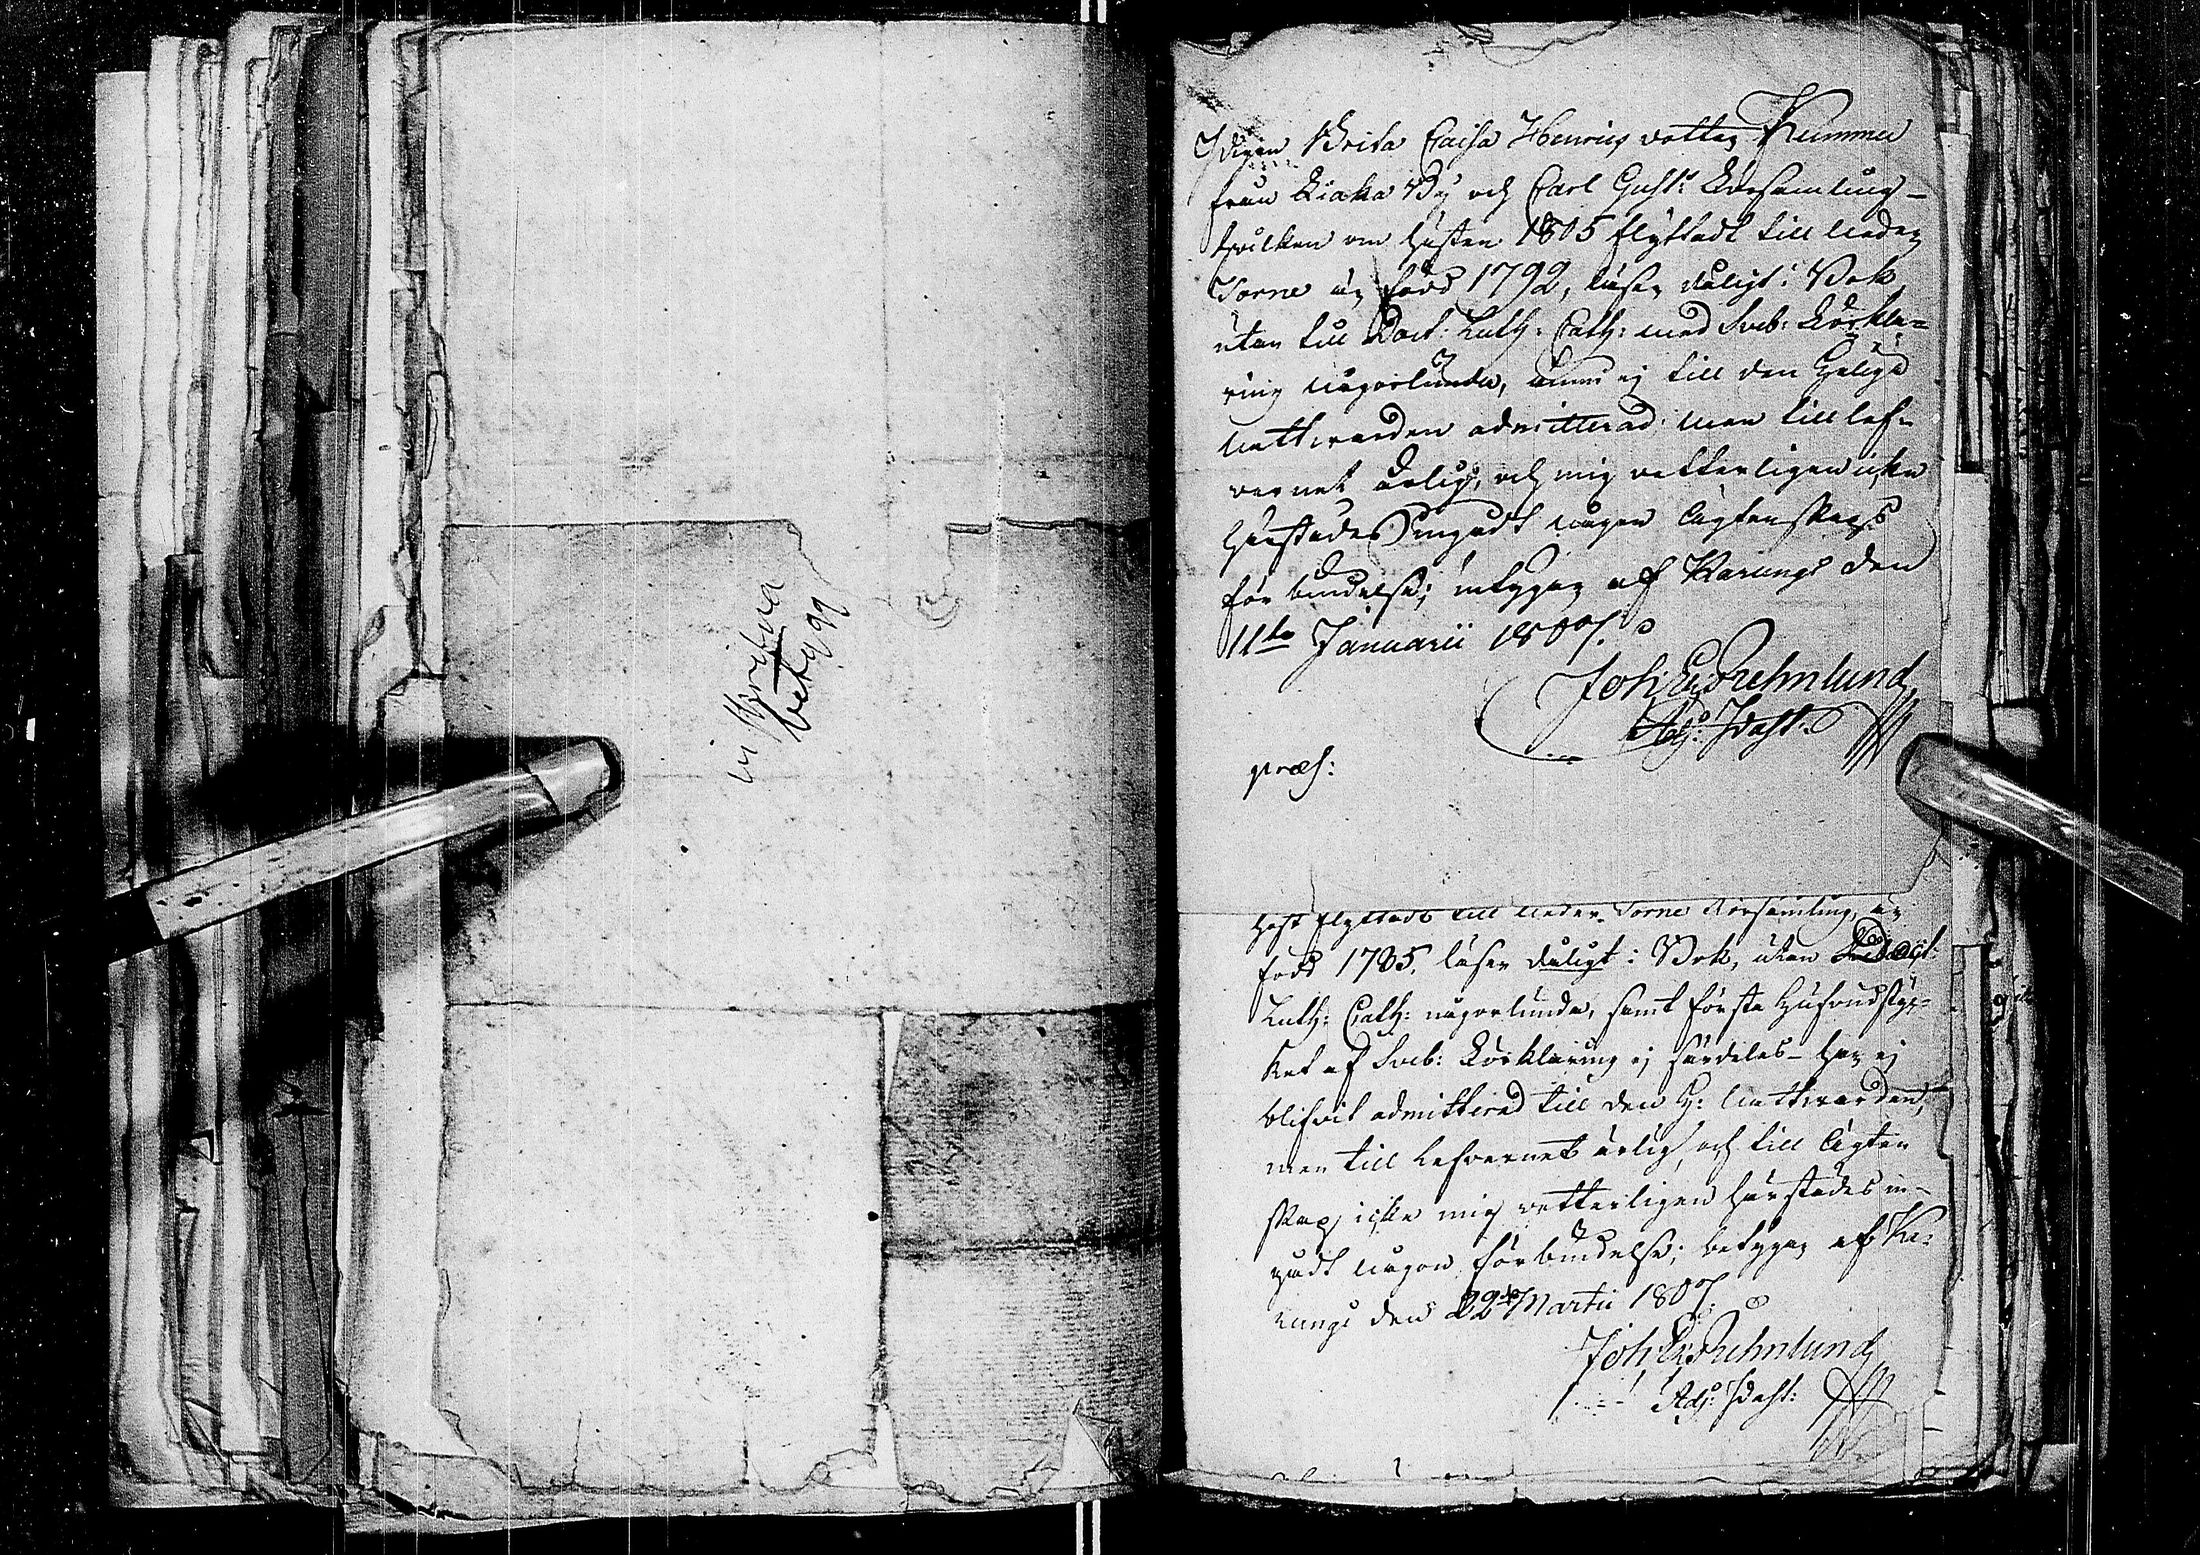 inskrifna
betyg
Pigan Brita Caisa Henrics dotter Kummu
från Kiaka By och Carl Gust: Församling -
hvilken om hösten 1805 flyttadt till neder
Torne är född 1792, läser daligt i Bok
utan till Doct: Luth: Cath: med Sveb: Förkla=
ring någorlunda, ännu ej till den Helige
nattvarden admitterad men till lef-
vernet ärlig, och mig vetterligen icke
härstädes Ingadt någon ägtenskaps
förbindelse; betygar af Karungi den
11te Januarii 1807.
Joh: Er: Frehmlund
Adj: Past:
præs:
höst flyttadt till neder Torne Församling, är
född 1785, läser daligt i Bok, utan Doct:
Luth: Cath: någorlunda, samt första Hufvudstyc-
ket af Sveb: Förklaring ej särdeles - har ej
blifvit admitterad till den H: Nattvarden,
men till Lefvernet ärlig, och till ägten
skap icke mig vetterligen härstädes in-
gadt någon förbindelse; betygar af Ka-
rungi den 22de Martii 1807.
Joh: Er: Frehmlund
Adj: Past: